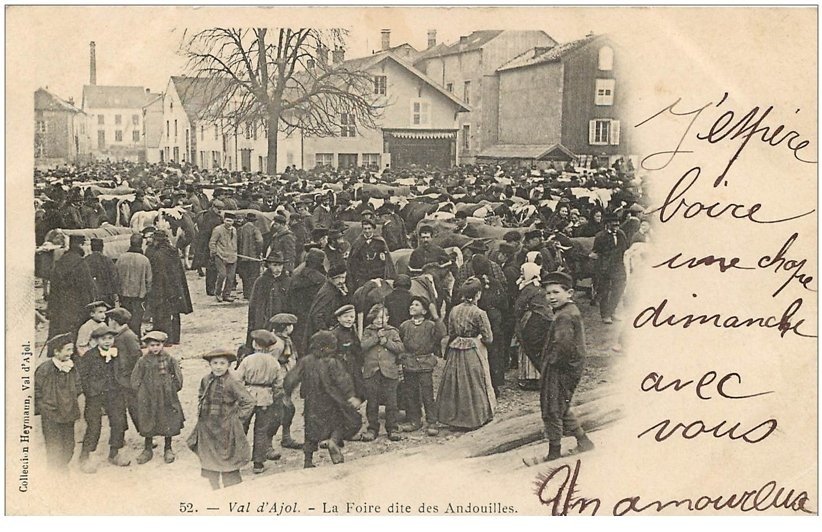 J'espère
boire
une chope
dimanche
avec
vous
Un amoureux
Collection Heymann, Val d'Ajol.
52. — Val d'Ajol. - La Foire dite des Andouilles.